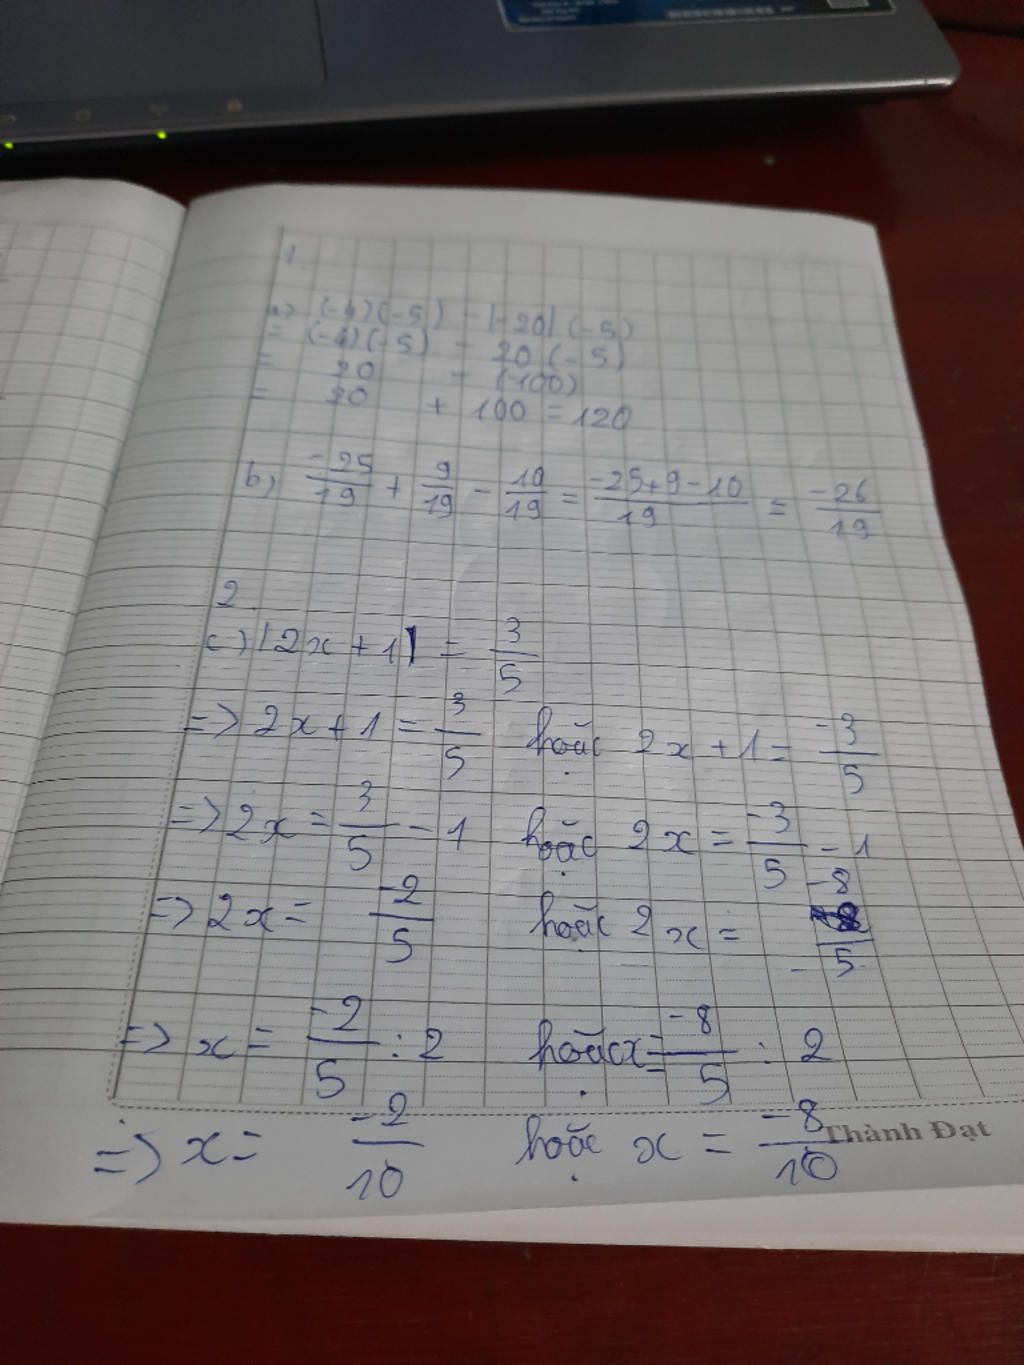 1
a) (-4)(-5) - |-20| (-5)
= (-4)(-5) - 20 (-5)
= 20 - (-100)
= 20 + 100 = 120
b) -25/19 + 9/19 - 10/19 = -25+9-10/19 = -26/19
2
c) |2x+1| = 3/5
=> 2x+1 = 3/5 hoặc 2x+1 = -3/5
=> 2x = 3/5 - 1 hoặc 2x = -3/5 - 1
=> 2x = -2/5 hoặc 2x = -8/5
=> x = -2/5 : 2 hoặc x = -8/5 : 2
=> x = -2/10 hoặc x = -8/10
Thành Đạt